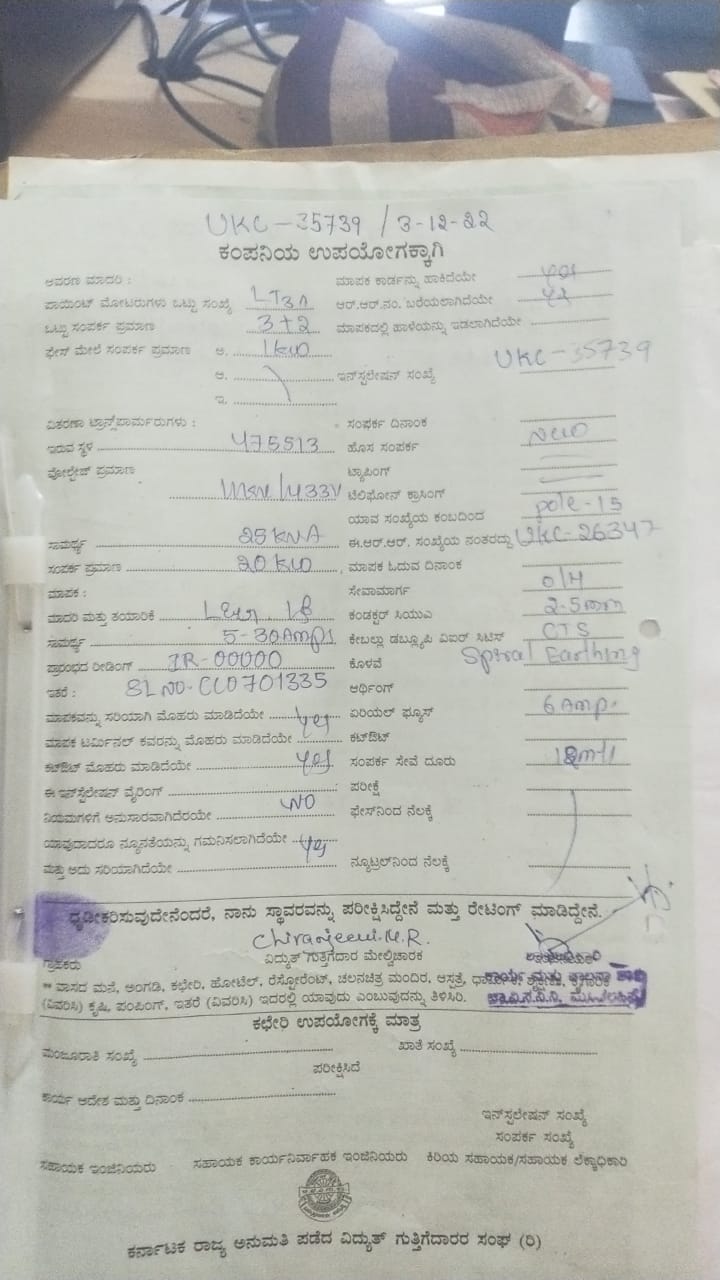 UKC-35739 / 3-12-22
ಕಂಪನಿಯ ಉಪಯೋಗಕ್ಕಾಗಿ
ಆವರಣ ಮಾದರಿ : ಮಾಪಕ ಕಾರ್ಡನ್ನು ಹಾಕಿದೆಯೇ yes
ಪಾಯಿಂಟ್ ಮೋಟರುಗಳು ಒಟ್ಟು ಸಂಖ್ಯೆ LT3A ಆರ್.ಆರ್.ನಂ. ಬರೆಯಲಾಗಿದೆಯೇ yes
ಒಟ್ಟು ಸಂಪರ್ಕ ಪ್ರಮಾಣ 3+2 ಮಾಪಕದಲ್ಲಿ ಹಾಳೆಯನ್ನು ಇಡಲಾಗಿದೆಯೇ
ಫೇಸ್ ಮೇಲೆ ಸಂಪರ್ಕ ಪ್ರಮಾಣ ಅ. 1kw UKC-35739
ಆ. ಇನ್‌ಸ್ಟಲೇಷನ್ ಸಂಖ್ಯೆ
ಇ.
ವಿತರಣಾ ಟ್ರಾನ್ಸ್‌ಫಾರ್ಮರುಗಳು : ಸಂಪರ್ಕ ದಿನಾಂಕ
ಇರುವ ಸ್ಥಳ 475513 ಹೊಸ ಸಂಪರ್ಕ New
ವೋಲ್ಟೇಜ್ ಪ್ರಮಾಣ ಟ್ಯಾಪಿಂಗ್
11kv/433V ಟೆಲಿಫೋನ್ ಕ್ರಾಸಿಂಗ್
ಯಾವ ಸಂಖ್ಯೆಯ ಕಂಬದಿಂದ pole-15
ಸಾಮರ್ಥ್ಯ 25KVA ಈ.ಆರ್.ಆರ್. ಸಂಖ್ಯೆಯ ನಂತರದ್ದು UKC-26347
ಸಂಪರ್ಕ ಪ್ರಮಾಣ 20KW ಮಾಪಕ ಓದುವ ದಿನಾಂಕ
ಮಾಪಕ : ಸೇವಾಮಾರ್ಗ O/H
ಮಾದರಿ ಮತ್ತು ತಯಾರಿಕೆ ಕಂಡಕ್ಟರ್ ಸಿಯುಎ 2.5mm
ಸಾಮರ್ಥ್ಯ 5-30Amps ಕೇಬಲ್ಲು ಡಬ್ಲ್ಯೂಪಿ ವಿಐರ್ ಸಿಟಿಸ್ CTS
ಪ್ರಾರಂಭದ ರೀಡಿಂಗ್ IR-00000 ಕೊಳವೆ Spiral Earthing
ಇತರೆ : SLNO-CC0701335 ಆರ್ಥಿಂಗ್
ಮಾಪಕವನ್ನು ಸರಿಯಾಗಿ ಮೊಹರು ಮಾಡಿದೆಯೇ yes ಏರಿಯಲ್ ಫ್ಯೂಸ್ 6Amp.
ಮಾಪಕ ಟರ್ಮಿನಲ್ ಕವರನ್ನು ಮೊಹರು ಮಾಡಿದೆಯೇ ಕಟ್‌ಔಟ್
ಕಟ್‌ಔಟ್ ಮೊಹರು ಮಾಡಿದೆಯೇ yes ಸಂಪರ್ಕ ಸೇವೆ ದೂರು
ಈ ಇನ್‌ಸ್ಟಲೇಷನ್ ವೈರಿಂಗ್ ಪರೀಕ್ಷೆ
ನಿಯಮಗಳಿಗೆ ಅನುಸಾರವಾಗಿದೆರಯೇ NO ಫೇಸ್‌ನಿಂದ ನೆಲಕ್ಕೆ
ಯಾವುದಾದರೂ ನ್ಯೂನತೆಯನ್ನು ಗಮನಿಸಲಾಗಿದೆಯೇ yes
ಮತ್ತು ಅದು ಸರಿಯಾಗಿದೆಯೇ ನ್ಯೂಟ್ರಲ್‌ನಿಂದ ನೆಲಕ್ಕೆ
ಧೃಡೀಕರಿಸುವುದೇನೆಂದರೆ, ನಾನು ಸ್ಥಾವರವನ್ನು ಪರೀಕ್ಷಿಸಿದ್ದೇನೆ ಮತ್ತು ರೇಟಿಂಗ್ ಮಾಡಿದ್ದೇನೆ.
Chiranjeevi.M.R.
ಗ್ರಾಹಕರು ವಿದ್ಯುತ್ ಗುತ್ತಿಗೆದಾರ ಮೇಲ್ವಿಚಾರಕ
** ವಾಸದ ಮನೆ, ಅಂಗಡಿ, ಕಛೇರಿ, ಹೋಟೆಲ್, ರೆಸ್ಟೋರೆಂಟ್, ಚಲನಚಿತ್ರ ಮಂದಿರ, ಆಸ್ಪತ್ರೆ,
(ವಿವರಿಸಿ) ಕೃಷಿ, ಪಂಪಿಂಗ್, ಇತರೆ (ವಿವರಿಸಿ) ಇದರಲ್ಲಿ ಯಾವುದು ಎಂಬುವುದನ್ನು ತಿಳಿಸಿರಿ.
ಕಛೇರಿ ಉಪಯೋಗಕ್ಕೆ ಮಾತ್ರ
ಮಂಜೂರಾತಿ ಸಂಖ್ಯೆ ಖಾತೆ ಸಂಖ್ಯೆ
ಪರೀಕ್ಷಿಸಿದೆ
ಕಾರ್ಯ ಆದೇಶ ಮತ್ತು ದಿನಾಂಕ
ಇನ್‌ಸ್ಟಲೇಷನ್ ಸಂಖ್ಯೆ
ಸಂಪರ್ಕ ಸಂಖ್ಯೆ
ಸಹಾಯಕ ಇಂಜಿನಿಯರು ಸಹಾಯಕ ಕಾರ್ಯನಿರ್ವಾಹಕ ಇಂಜಿನಿಯರು ಕಿರಿಯ ಸಹಾಯಕ/ಸಹಾಯಕ ಲೆಕ್ಕಾಧಿಕಾರಿ
ಕರ್ನಾಟಕ ರಾಜ್ಯ ಅನುಮತಿ ಪಡೆದ ವಿದ್ಯುತ್ ಗುತ್ತಿಗೆದಾರರ ಸಂಘ (ರಿ)